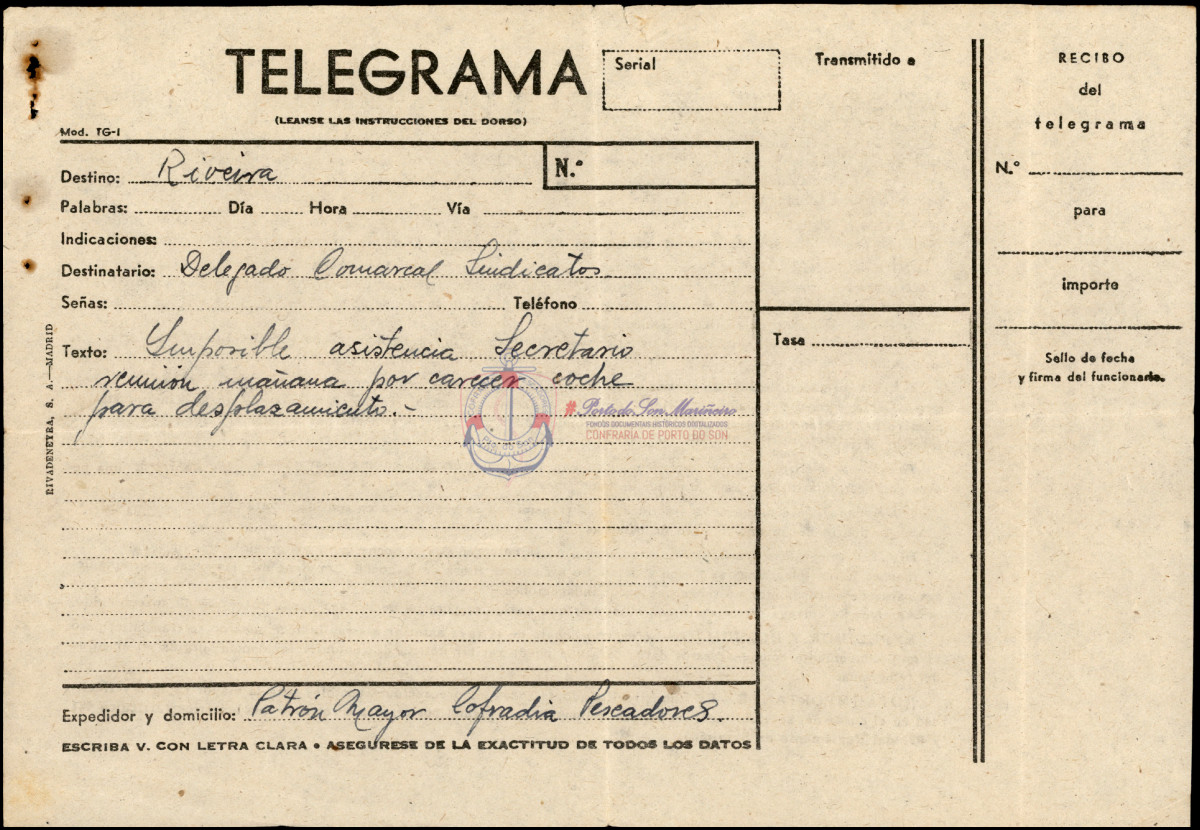 TELEGRAMA
(LEANSE LAS INSTRUCCIONES DEL DORSO)
Serial
Transmitido a
Mod. TG-1
Destino: Riveira
N.º
Palabras: Día Hora Vía
Indicaciones:
Destinatario: Delegado Comarcal Sindicatos
Señas: Teléfono
Texto: Imposible asistencia Secretario
reunión mañana por carecer coche
para desplazamiento.-
Expedidor y domicilio: Patrón Mayor Cofradia Pescadores.
ESCRIBA V. CON LETRA CLARA • ASEGURESE DE LA EXACTITUD DE TODOS LOS DATOS
RIVADENEYRA, S. A.—MADRID
Tasa
RECIBO
del
telegrama
N.º
para
importe
Sello de fecha
y firma del funcionario.
# Porto do Son Mariñeiro
FONDOS DOCUMENTAIS HISTÓRICOS DIXITALIZADOS
CONFRARÍA DE PORTO DO SON